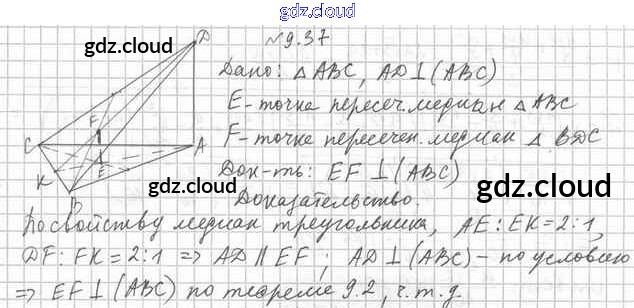 gdz.cloud
№9.37
gdz.cloud
D
Дано: △ABC, AD⊥(ABC)
E-точка пересеч. медиан △ABC
F-точка пересечен. медиан △ BDC
Док-ть: EF⊥(ABC)
Доказательство.
F
C
A
E
K
B
gdz.cloud
gdz.cloud
По свойству медиан треугольника, AE:EK=2:1,
DF:FK=2:1 ⇒ AD∥EF; AD⊥(ABC)-по условию
⇒ EF⊥(ABC) по теореме 9.2, ч.т.д.